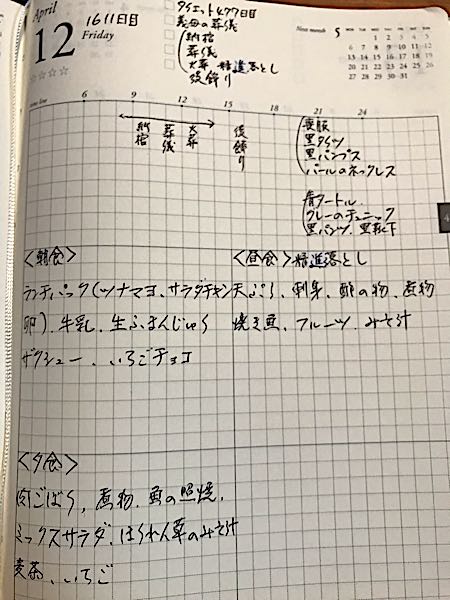 April
12
Friday
1611日目
ダイエット477日目
義母の葬儀
納棺
葬儀
火葬 精進落とし
後飾り
Next month 5
MON TUE WED THU FRI SAT SUN
1 2 3 4 5
6 7 8 9 10 11 12
13 14 15 16 17 18 19
20 21 22 23 24 25 26
27 28 29 30 31
time line 6 9 12 15 18 21 24
納棺
葬儀
火葬
後飾り
喪服
黒タイツ
黒パンプス
パールのネックレス
青タートル
グレーのチュニック
黒パンツ、黒靴下
4
<朝食>
ランチパック(ツナマヨ、サラダチキン
卵)、牛乳、生ふまんじゅう
ザクシュー、いちごチョコ
<昼食>精進落とし
天ぷら、刺身、酢の物、煮物
焼き魚、フルーツ、みそ汁
<夕食>
肉ごぼう、煮物、魚の照焼、
ミックスサラダ、ほうれん草のみそ汁
麦茶、いちご